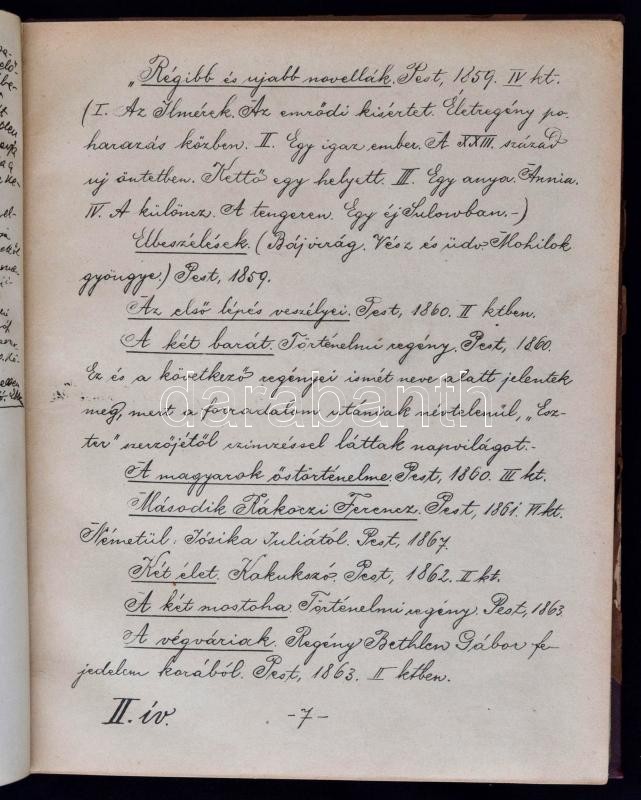 „Régibb és ujabb novellák. Pest, 1859. IV kt.
(I. Az Ilmérek. Az emrődi kisértet. Életregény po-
harazás közben. II. Egy igaz ember. A XXIII. század
uj öntetben. Kettő egy helyett. III. Egy anya. Annia.
IV. A különcz. A tengeren. Egy éj Sulowban.-)
Elbeszélések. (Bájvirág. Vész és üdv. Mohilok
gyöngye.) Pest, 1859.
Az első lépés veszélyei. Pest, 1860. II ktben.
A két barát. Történelmi regény. Pest, 1860.
Ez és a következő regényei ismét neve alatt jelentek
meg, mert a forradalom utániak névtelenül, „Esz-
ter" szerzőjétől czimzéssel láttak napvilágot.-
A magyarok őstörténelme. Pest, 1860. III kt.
Második Rákóczi Ferencz. Pest, 1861. VI kt.
Németül: Jósika Juliától. Pest, 1867.
Két élet. Kakukszó. Pest, 1862. II kt.
A két mostoha. Történelmi regény. Pest, 1863.
A végváriak. Regény Bethlen Gábor fe-
jedelem korából. Pest, 1863. II ktben.
II. ív.
-7-
darabanth